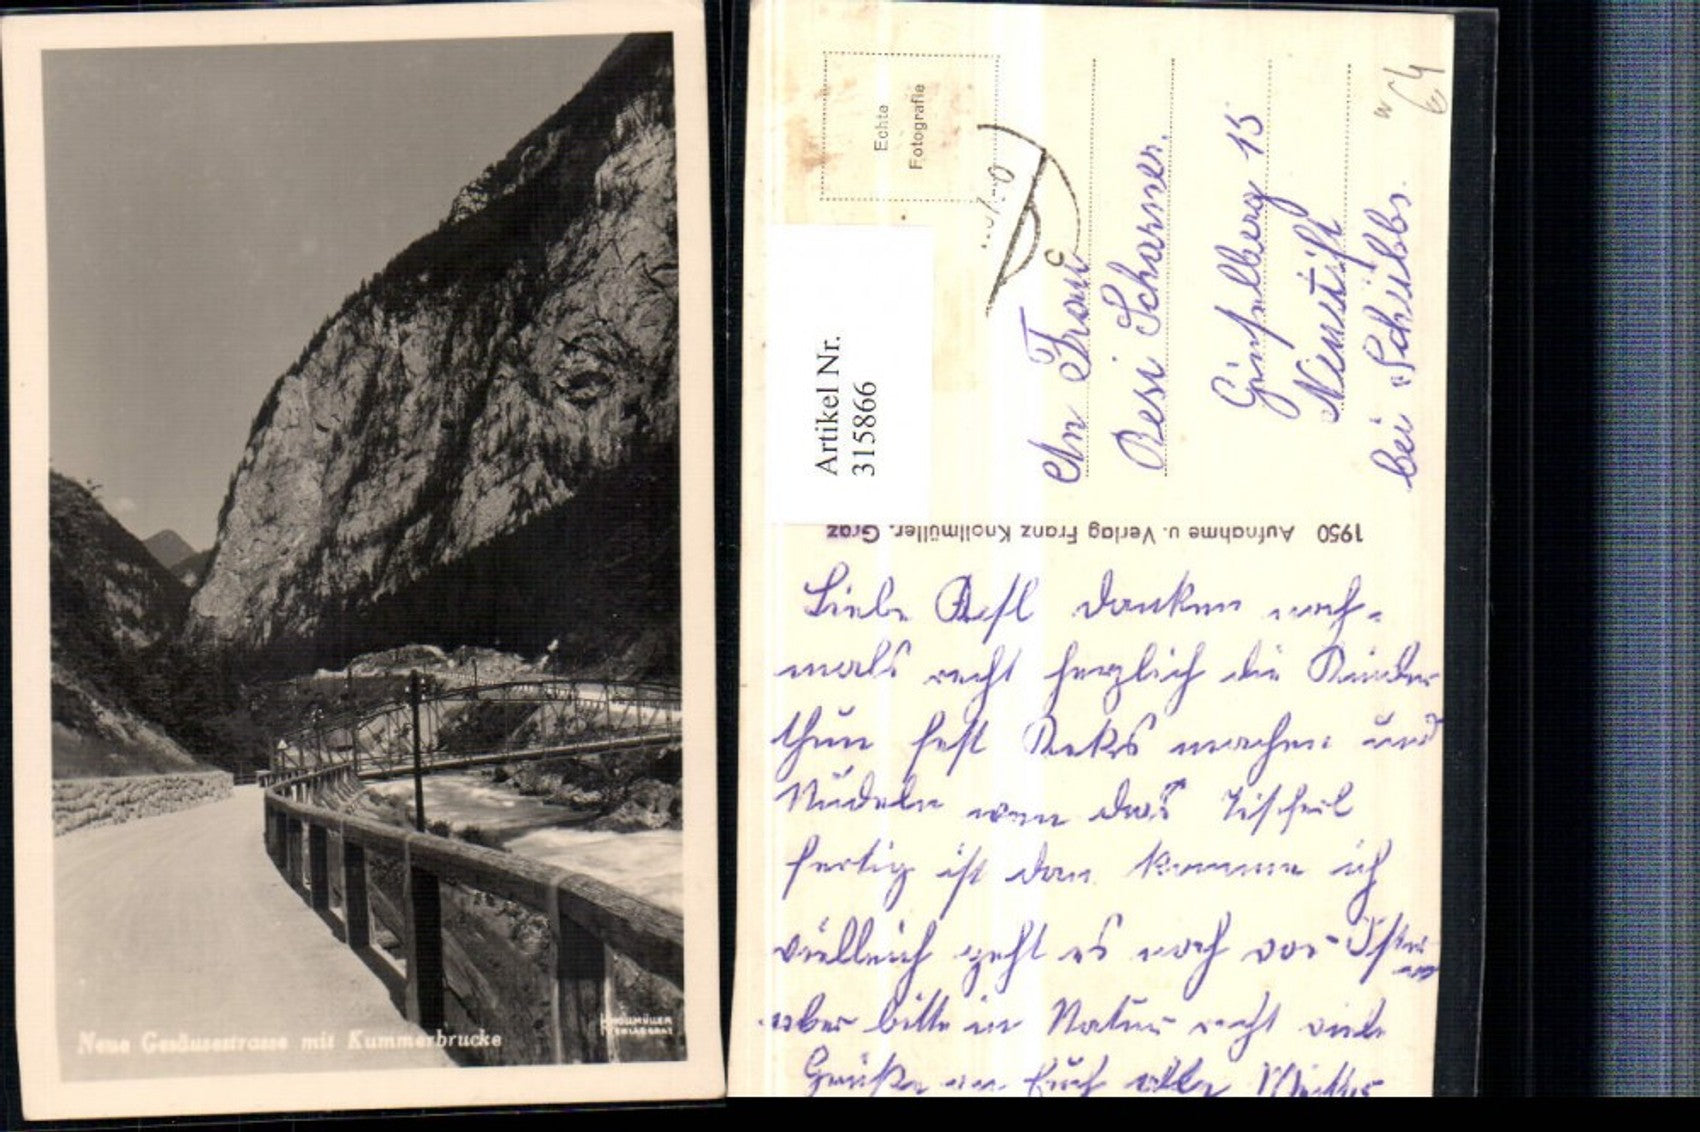 Neue Gesäusestrasse mit Kummerbrucke
KNOLLMÜLLER
VERLAG GRAZ
Echte
Fotografie
Artikel Nr.
315866
An Frau
Resi Scharner.
15
Neustift
bei Scheibbs.
64
1950 Aufnahme u. Verlag Franz Knollmüller, Graz
Liebe Resl danken noch-
mals recht herzlich die Kinder
thun fest Keks machen und
Nudeln wen das Tischerl
fertig ist dan komme ich
vielleich geht es noch vor Ostern
aber bitte in Natur recht viele
Grüße an Euch alle Mutter